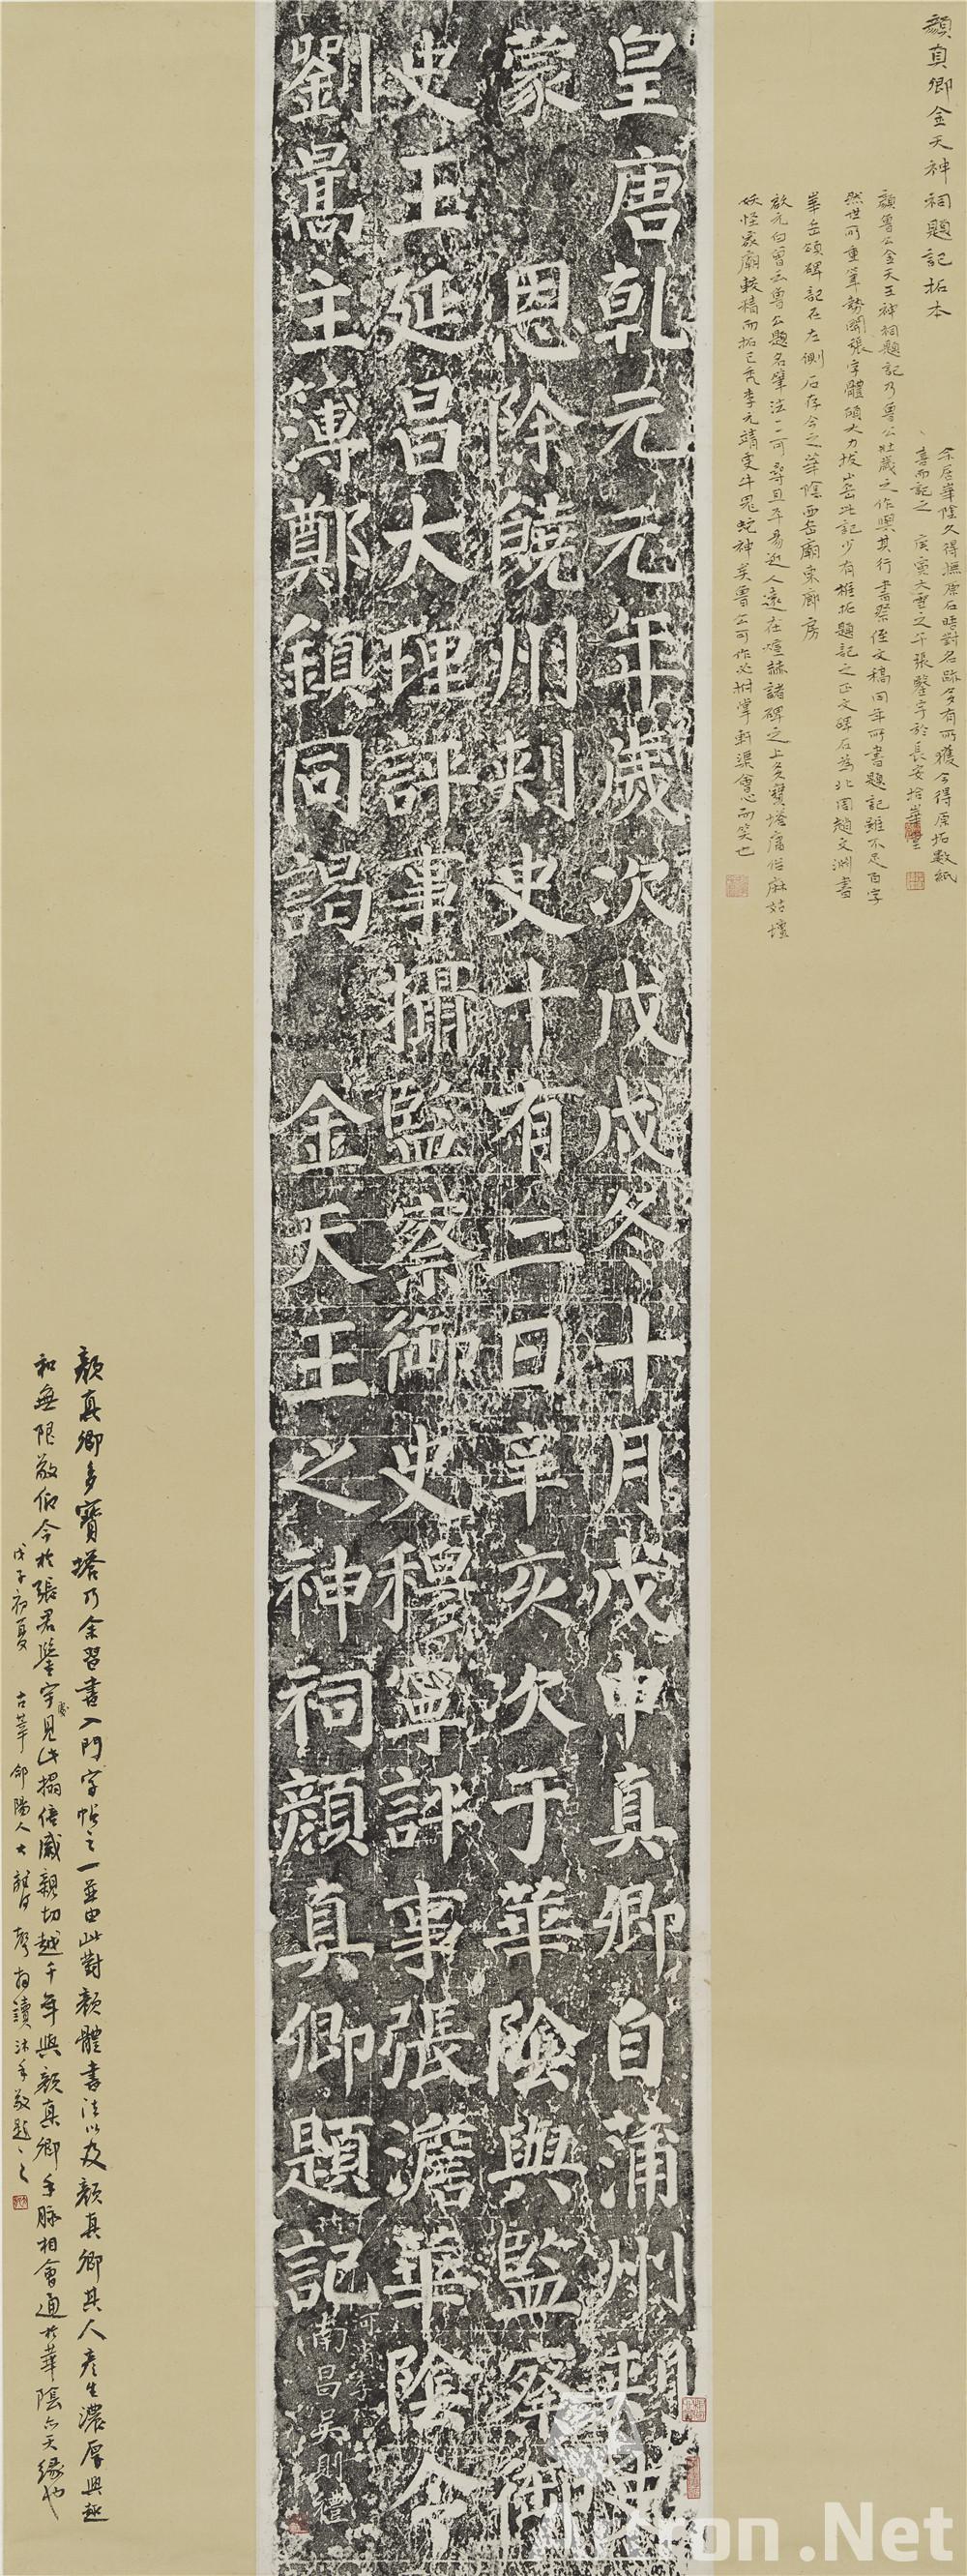 顏真卿金天神祠題記拓本
余居華陰久得撫原石時對名跡多有所獲今得原拓數紙
喜而記之 庚寅大雪之午張鑒宇於長安拾華堂
顏魯公金天王神祠題記乃魯公壯歲之作與其行書祭侄文稿同年所書題記雖不足百字
然世所重筆勢開張字體傾大力拔山岳此記少有椎拓題記之正文碑石為北周趙文淵書
華岳頌碑記在左側石存今之華陰西岳廟東廊房
啟元白曾云魯公題名筆法一一可尋且平易近人遠在煊赫諸碑之上多寶塔庸俗麻姑壇
妖怪家廟較積而拓已禿李元靖更牛鬼蛇神矣魯公可作必拊掌軒渠會心而笑也
皇唐乾元元年歲次戊戌冬十月戊申真卿自蒲州刺史
蒙 恩除饒州刺史十有二日辛亥次于華陰與監察御
史王延昌大理評事攝監察御史穆寧評事張澹華陰令
劉暠主簿鄭鎮同謁 金天王之神祠顏真卿題記
南昌吳則禮
顏真卿多寶塔乃余習書入門字帖之一並由此對顏體書法以及顏真卿其人產生濃厚興趣
和無限敬仰今於張君鑒宇處見此搨倍感親切越千年與顏真卿手脈相會通於華陰亦天緣也
戊子初夏 古莘郃陽人 拜讀沐手敬題之
Artron.Net